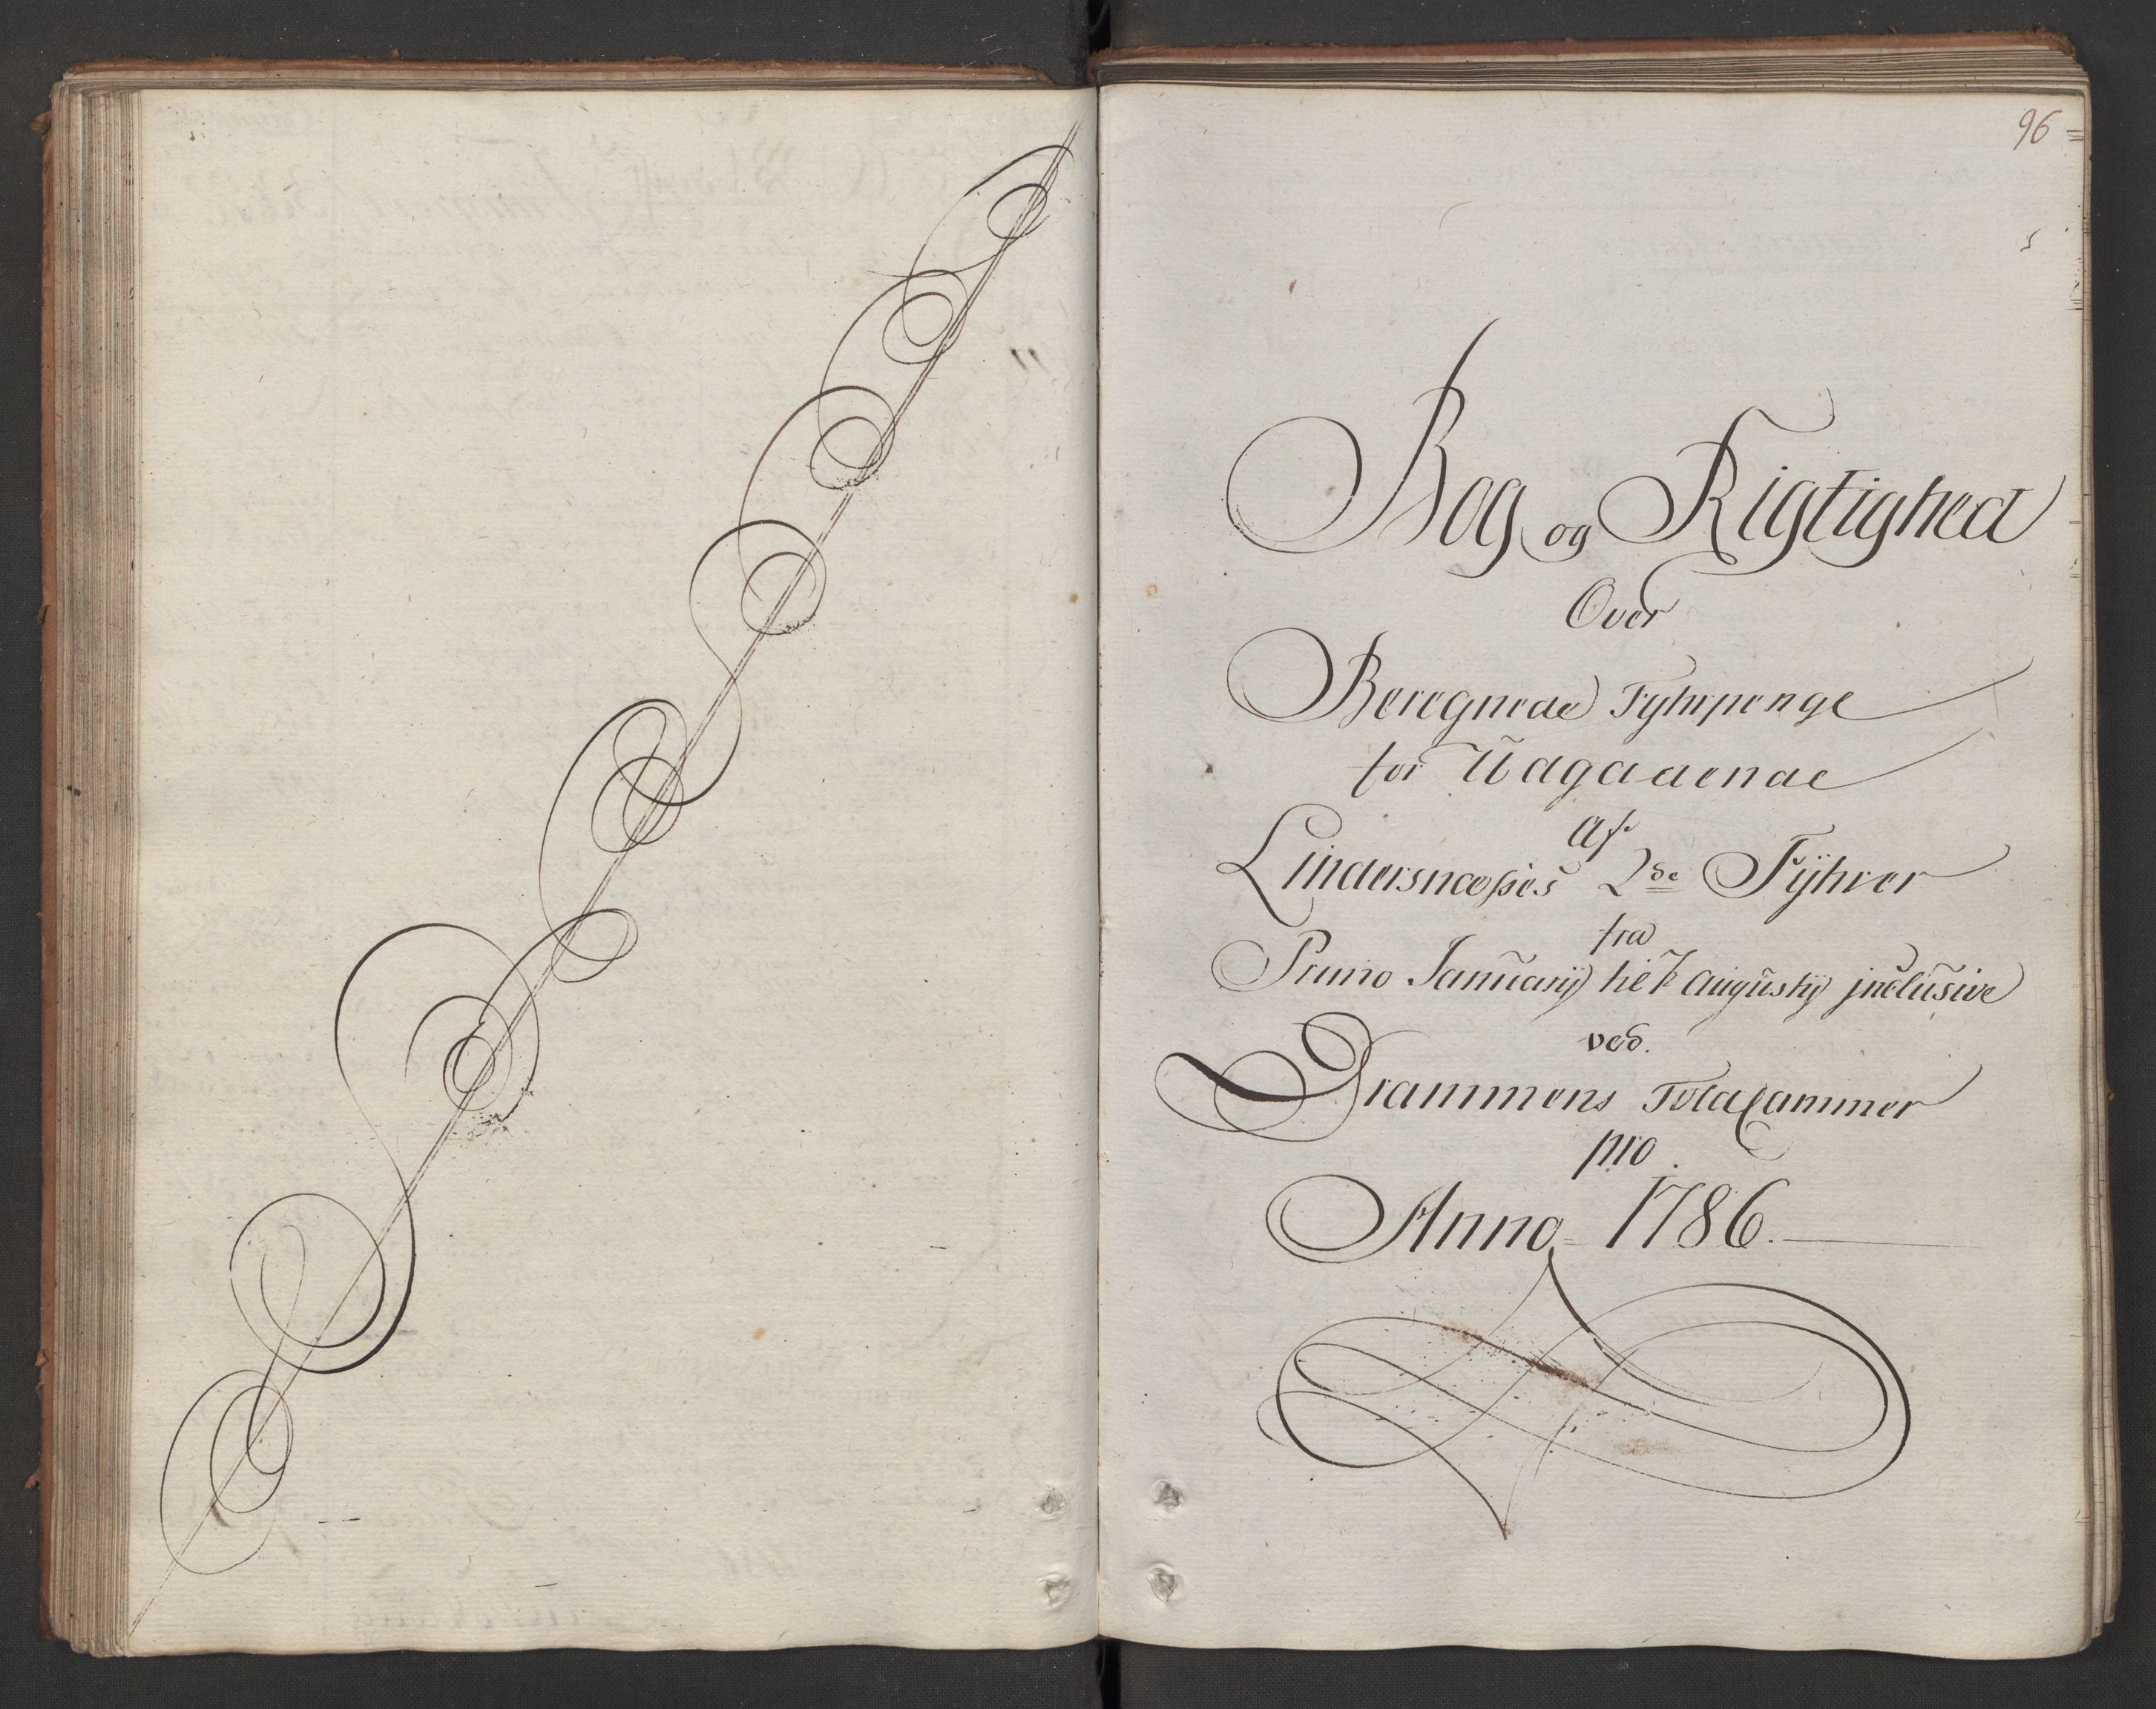 96
Bog og Rigtighed
Over
Beregnede Fyhrpenge
for Udgaaende
af
Lindersnæsses 2de Fÿhrer
fra
Primo Januarij til Augustij jnclusive
ved.
Drammens Toldcammer
pro
Anno 1786.